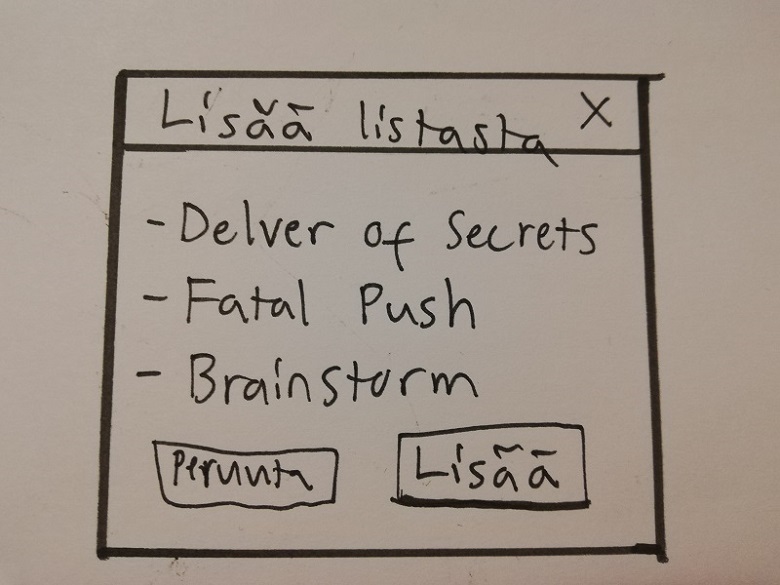 Lisää listasta X
- Delver of Secrets
- Fatal Push
- Brainstorm
Perunta Lisää